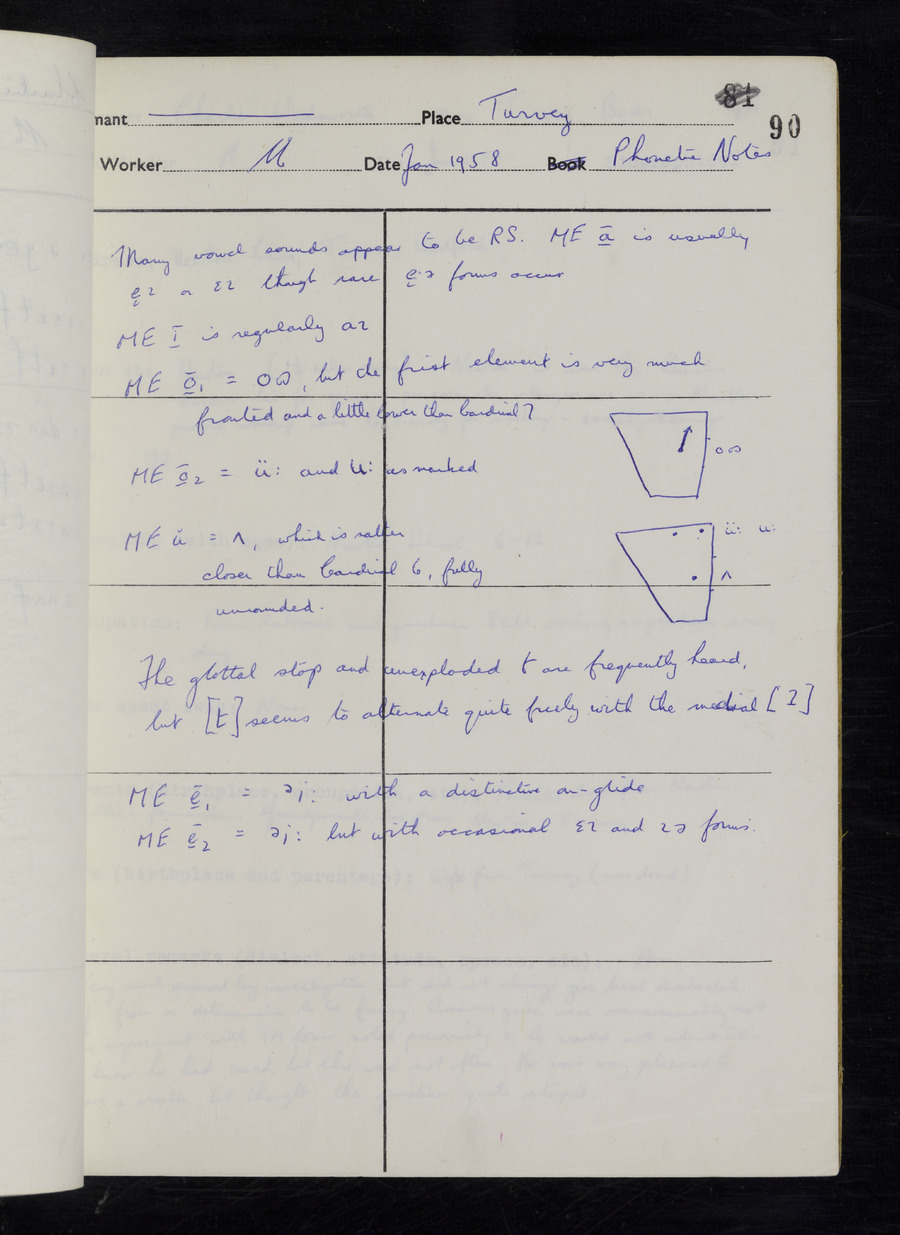 81
90
mant Place Turvey
Worker M Date Jan 1958 Book Phonetic Notes
Many vowel sounds appear to be RS. ME ā is usually
e̞ɪ or ɛɪ though rare e̞ə forms occur
ME ī is regularly aɪ
ME ō̱₁ = oω, but the first element is very much
fronted and a little lower than Cardinal 7
oω
ME ō̱₂ = ü: and u: as marked
ü: u:
ME ŭ = ʌ, which is rather
closer than Cardinal 6, fully
ʌ
unrounded.
The glottal stop and unexploded t are frequently heard,
but [t] seems to alternate quite freely with the medial [ʔ]
ME ē̱₁ = əi: with a distinctive on-glide
ME ē̱₂ = əi: but with occasional ɛɪ and ɪə forms.